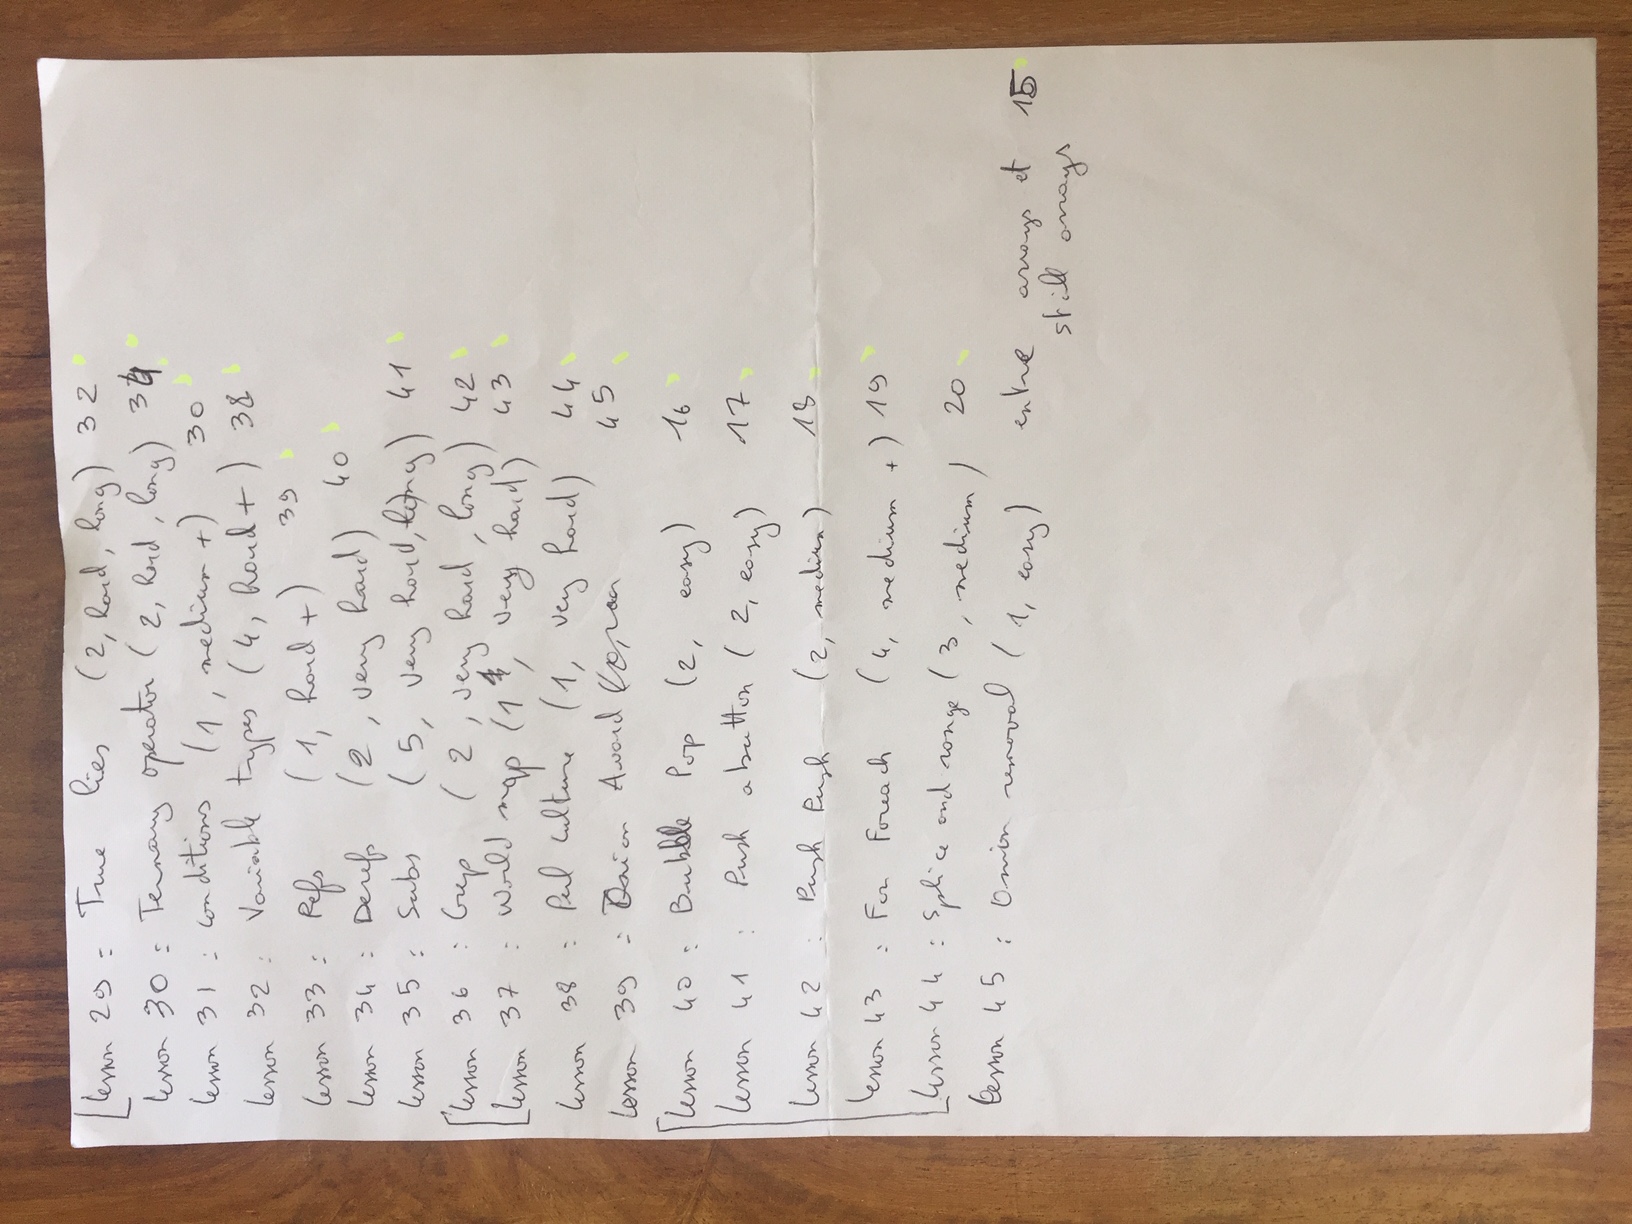 Lesson 29 : True lies (2, hard, long) 32
Lesson 30 : Ternary operator (2, hard, long) 34
Lesson 31 : conditions (1, medium +) 30
Lesson 32 : Variable types (4, hard +) 38
Lesson 33 : Refs (1, hard +) 39
Lesson 34 : Derefs (2, very hard) 40
Lesson 35 : Subs (5, very hard, long) 41
Lesson 36 : Grep (2, very hard, long) 42
Lesson 37 : World map (1, very hard) 43
Lesson 38 : Perl culture (1, very hard) 44
Lesson 39 : Onion Award 45
Lesson 40 : Bubble Pop (2, easy) 16
Lesson 41 : Push a button (2, easy) 17
Lesson 42 : Push Push (2, medium) 18
Lesson 43 : For Foreach (4, medium +) 19
Lesson 44 : Splice and range (3, medium) 20
Lesson 45 : Onion removal (1, easy) entre arrays et 15
still arrays